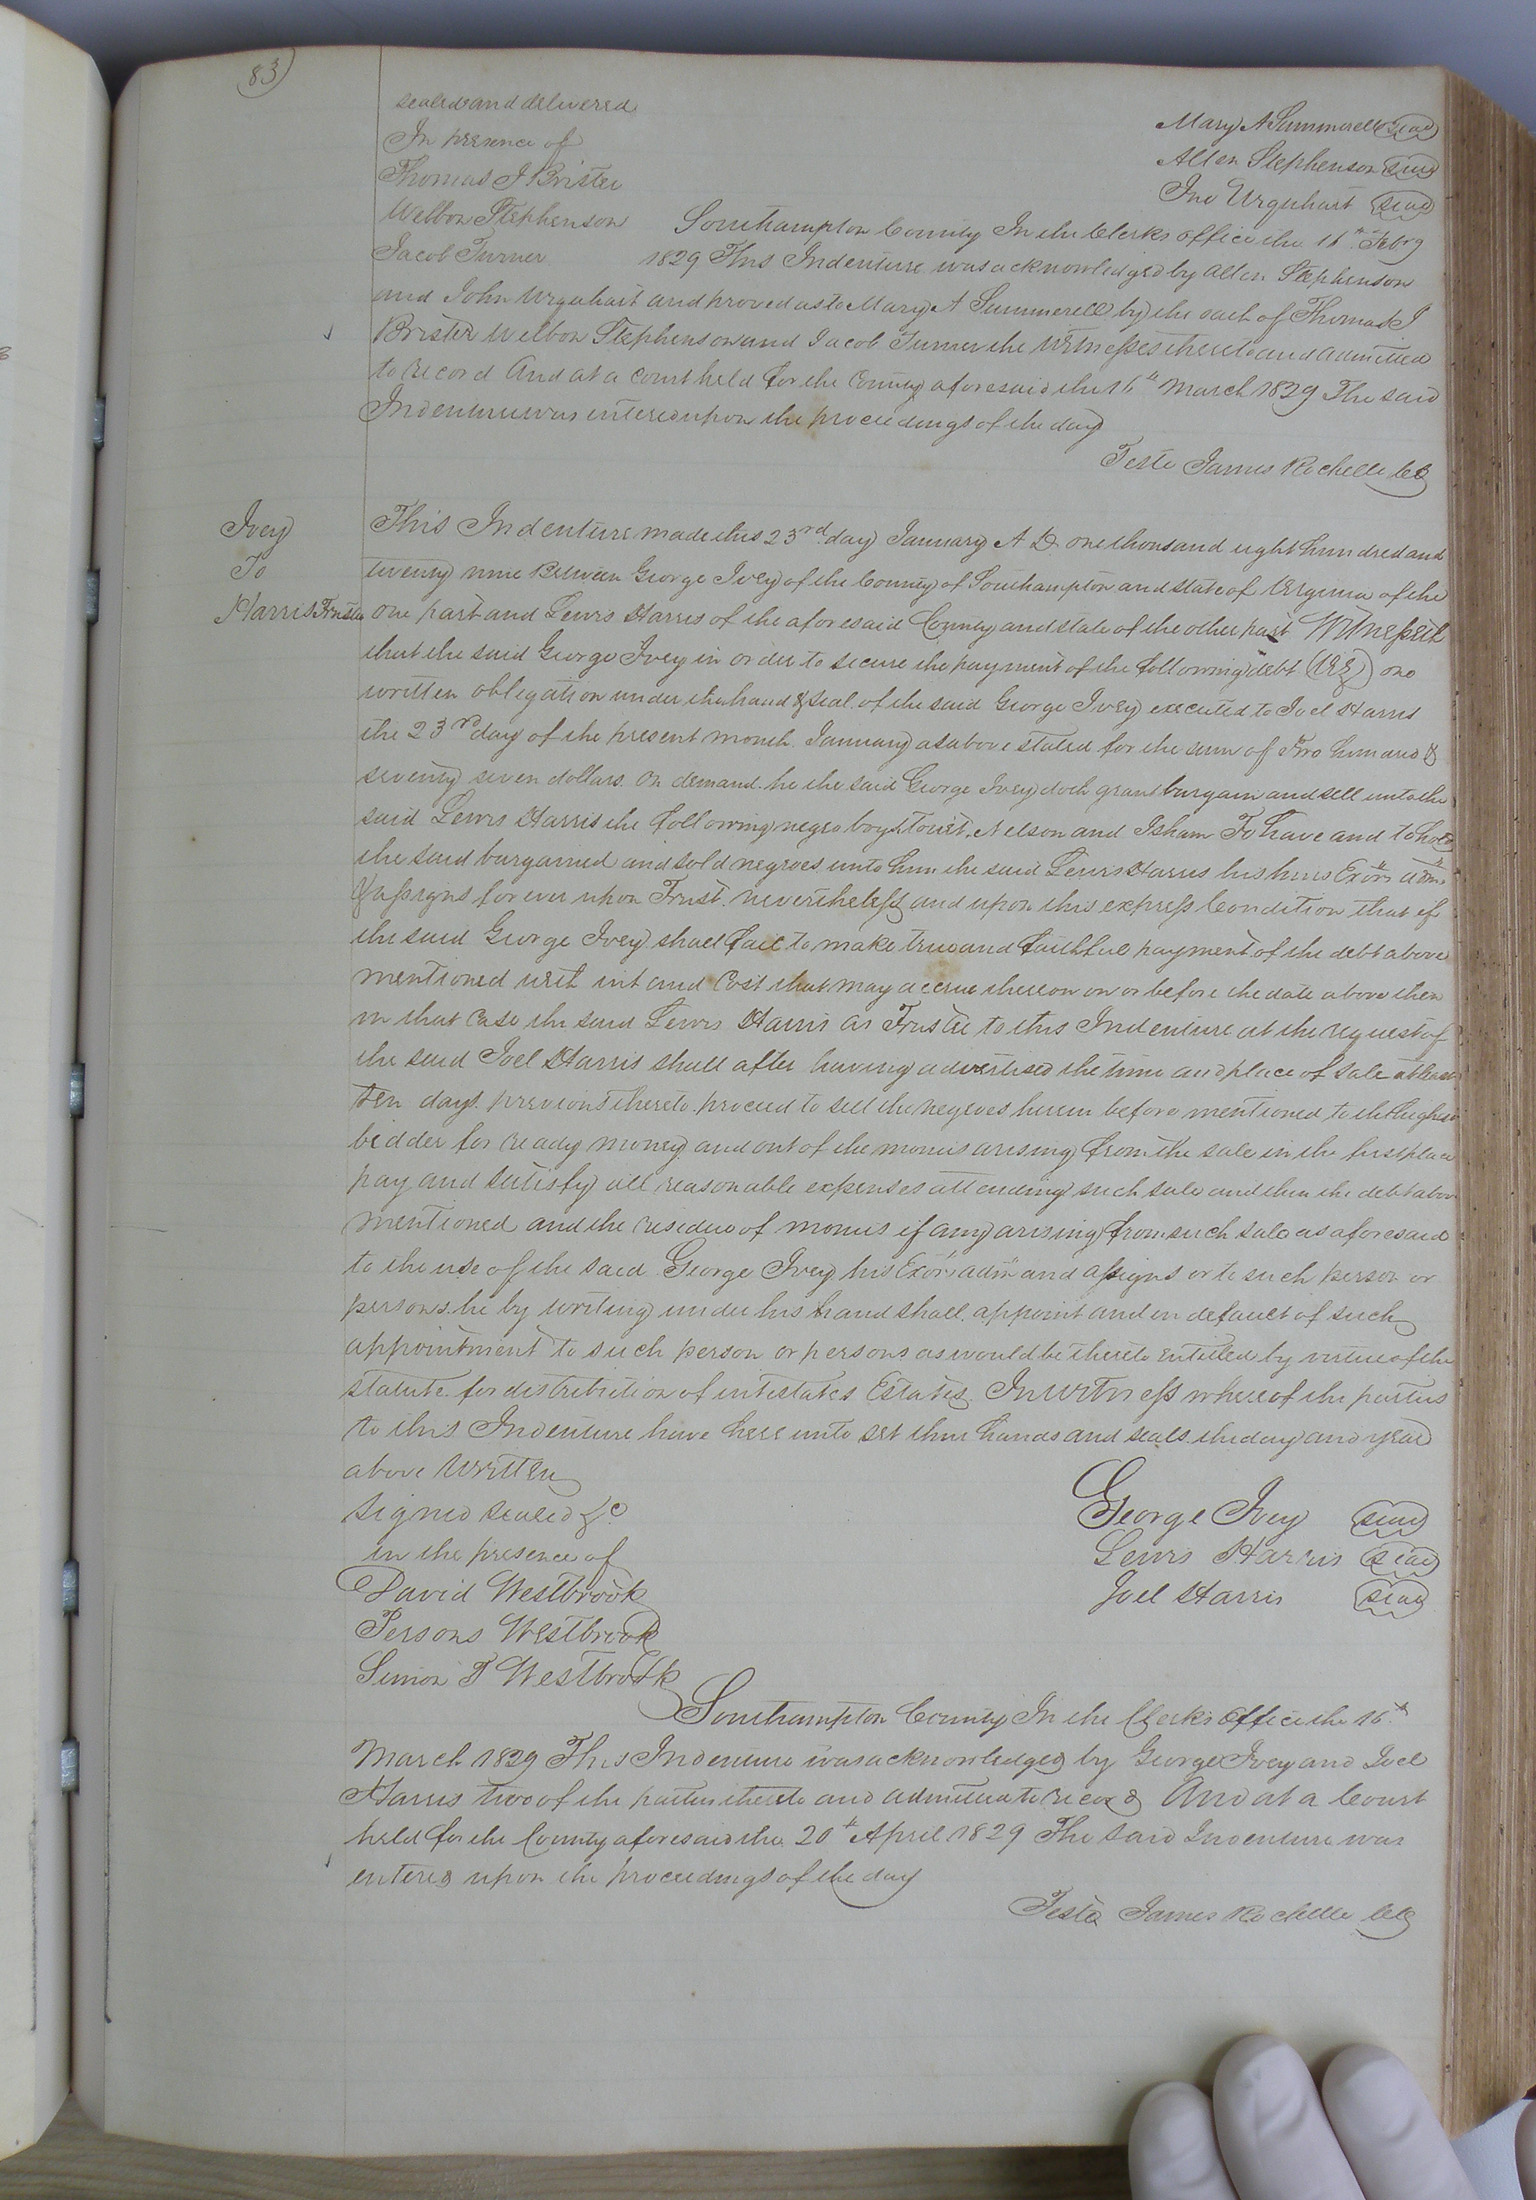 83)
sealed and delivered
In presence of
Thomas J Brister
Welbon Stephenson
Jacob Turner
Mary A Summerell seal
Allen Stephenson seal
Jno Urquhart seal
Southampton County In the Clerks office the 16th Feby
1829 This Indenture was acknowledged by Allen Stephenson
and John Urquhart and proved as to Mary A Summerell by the oath of Thomas J
Brister Welbon Stephenson and Jacob Turner the Witnesses thereto and admitted
to record And at a court held for the County aforesaid the 16th March 1829 The said
Indenture was entered upon the proceedings of the day
Teste James Rochelle CC
Ivey
To
Harris Trustee
This Indenture made this 23rd day January A D. one thousand eight hundred and
twenty nine Between George Ivey of the County of Southampton and state of Virginia of the
one part and Lewis Harris of the aforesaid County and state of the other part Witnesseth
that the said George Ivey in order to secure the payment of the following debt (viz) one
written obligation under the hand & seal of the said George Ivey executed to Joel Harris
the 23rd day of the present month January as above stated for the sum of Two hundred &
seventy seven dollars. On demand. he the said George Ivey doth grant bargain and sell unto the
said Lewis Harris the following negro boys Nelson and Isham To have and to hold
the said bargained and sold negroes unto him the said Lewis Harris his heirs Exors adm
& assigns for ever upon Trust. nevertheless and upon this express Condition that if
the said George Ivey shall fail to make true and faithful payment of the debt above
mentioned with int and Cost that may accrue thereon on or before the date above then
in that Case the said Lewis Harris as Trustee to this Indenture at the request of
the said Joel Harris shall after having advertised the time and place of sale at least
ten days. previous thereto. proceed to sell the negroes herein before mentioned to the highest
bidder for ready money and out of the monies arising from the sale in the first place
pay and satisfy all reasonable expenses attending such sale and then the debt above
mentioned and the residue of monies if any arising from such sale as aforesaid
to the use of the said George Ivey his Exors adm and assigns or to such person or
persons. he by writing under his hand shall. appoint and in default of such
appointment to such person or persons as would be thereto entitled by virtue of the
statute for distribution of intestates Estates. In witness whereof the parties
to this Indenture have here unto set their hands and seals the day and year
above written
signed sealed &c
in the presence of
David Westbrook
Persons Westbrook
Simon T Westbrook
George Ivey seal
Lewis Harris seal
Joel Harris seal
Southampton County In the Clerks Office the 16th
March 1829 This Indenture was acknowledged by George Ivey and Joel
Harris two of the parties thereto and admitted to record And at a Court
held for the County aforesaid the 20th April 1829 The said Indenture was
entered upon the proceedings of the day
Teste James Rochelle CC